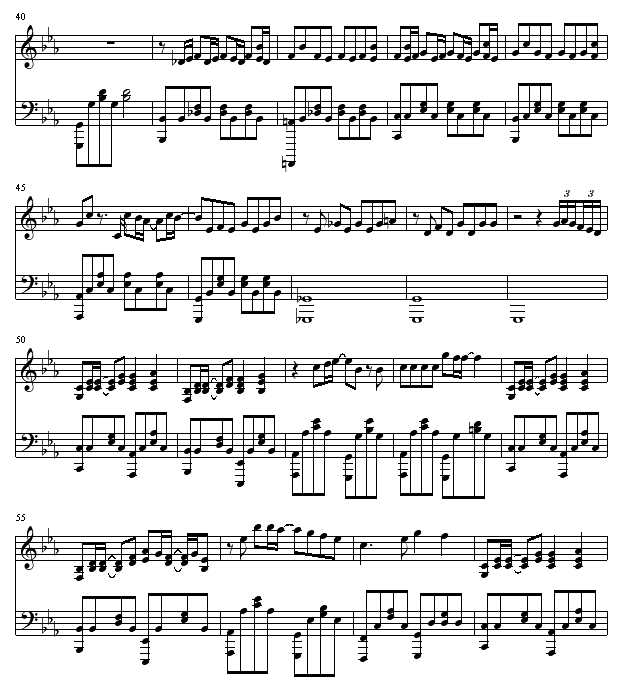 40
45
3 3
50
55